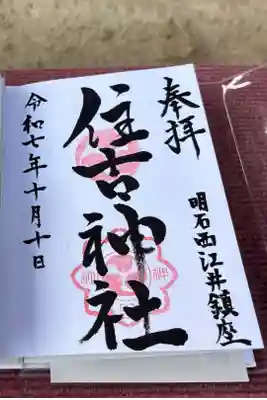 奉拝
明石西江井鎮座
住吉神社
令和七年十月十日